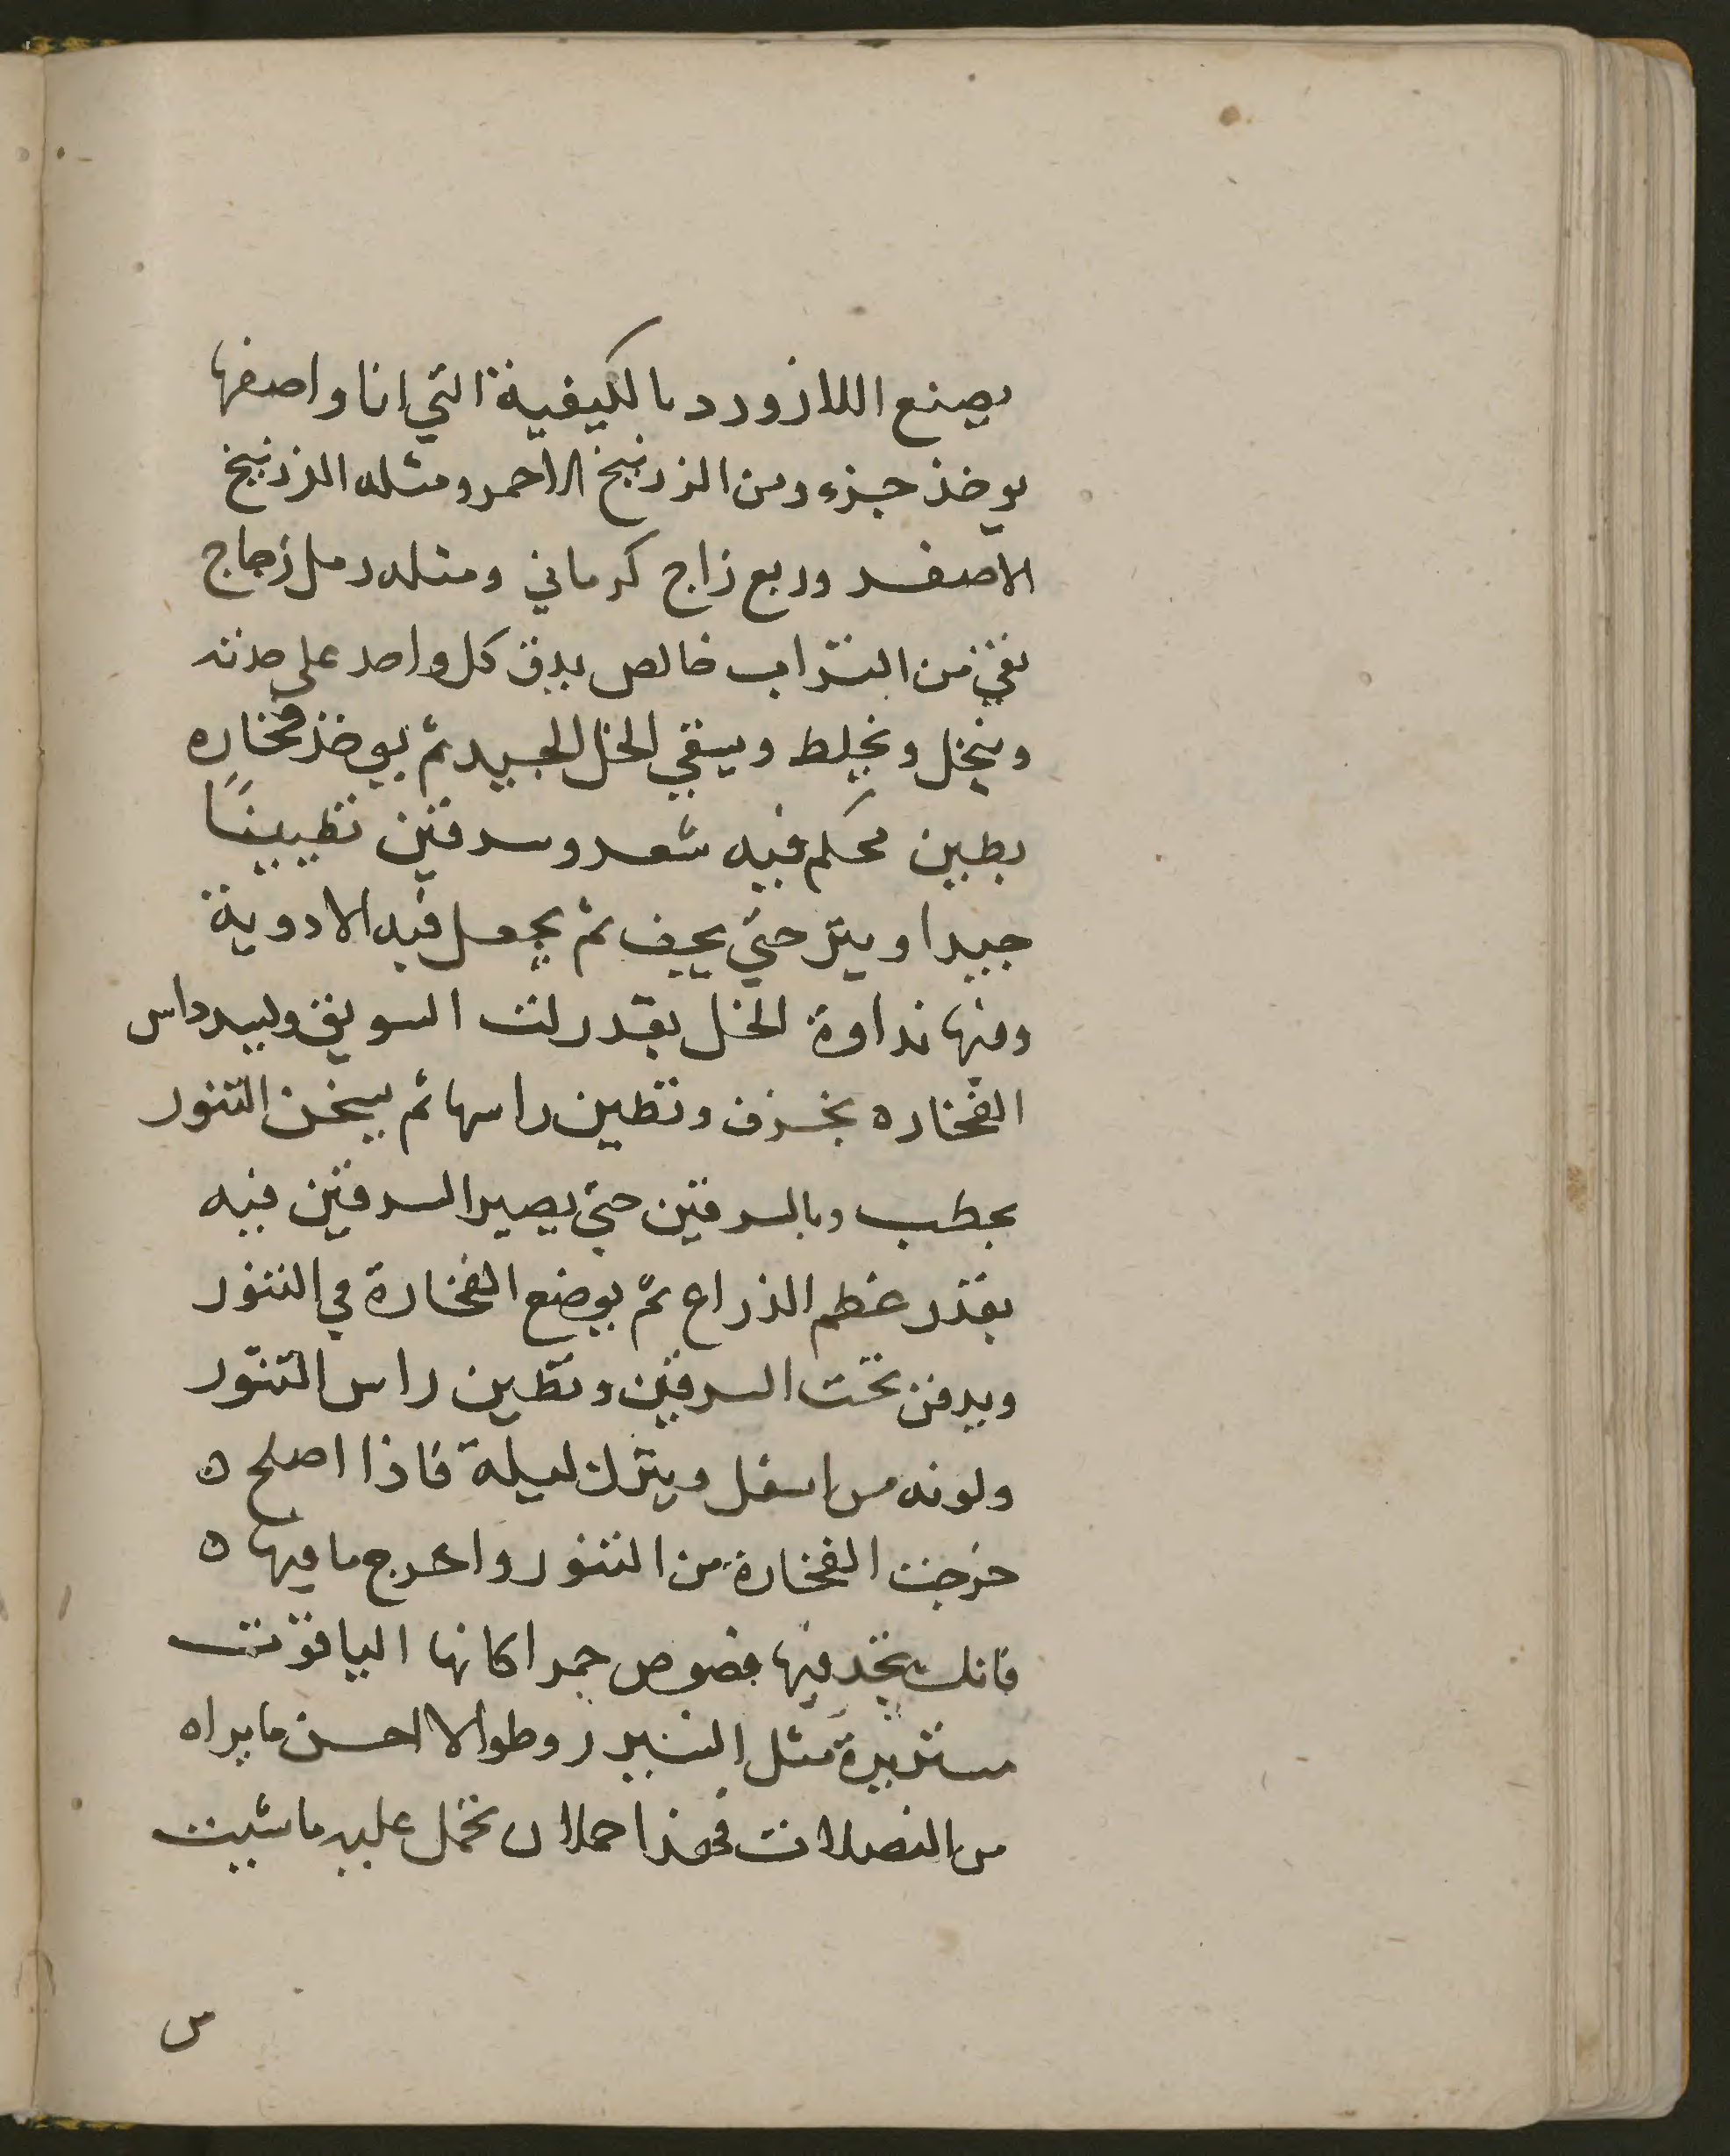 يصنع اللازورد بالكيفية التي انا واصفها
يوخذ جزء ومن الزرنيخ الاحمر ومثله الزرنيخ
الاصفر وربع زاج كرماني ومثله رمل زجاج
نقي من التراب خالص يدق كل واحد على حدته
وينخل ويخلط ويسقي الخل الجيد ثم يوخذ فخاره
بطين محكم فيه شعر وسرقين تطيينًا
جيدا ويتر حتي يجف ثم يجعل فيه الادوية
وفيها نداوة الخل بقدر لت السويق وليسد راس
الفخاره بخزف وتطين راسها ثم يسخن التنور
بحطب وبالسرقين حتي يصير السرقين فيه
بقدر عظم الذراع ثم يوضع الفخارة في التنور
ويدفن تحت السرقين وتطين راس التنور
ولونه من اسفل ويترك ليلة فاذا اصلح ه
خرجت الفخارة من التنور واخرج ما فيها ه
فانك تجد فيها فصوص حمر اكانها الياقوت
مستديرة مثل البنبدر وطوالا احسن ما يراه
من الفضلات فهذا حملان تحمل عليه ما شيت
من